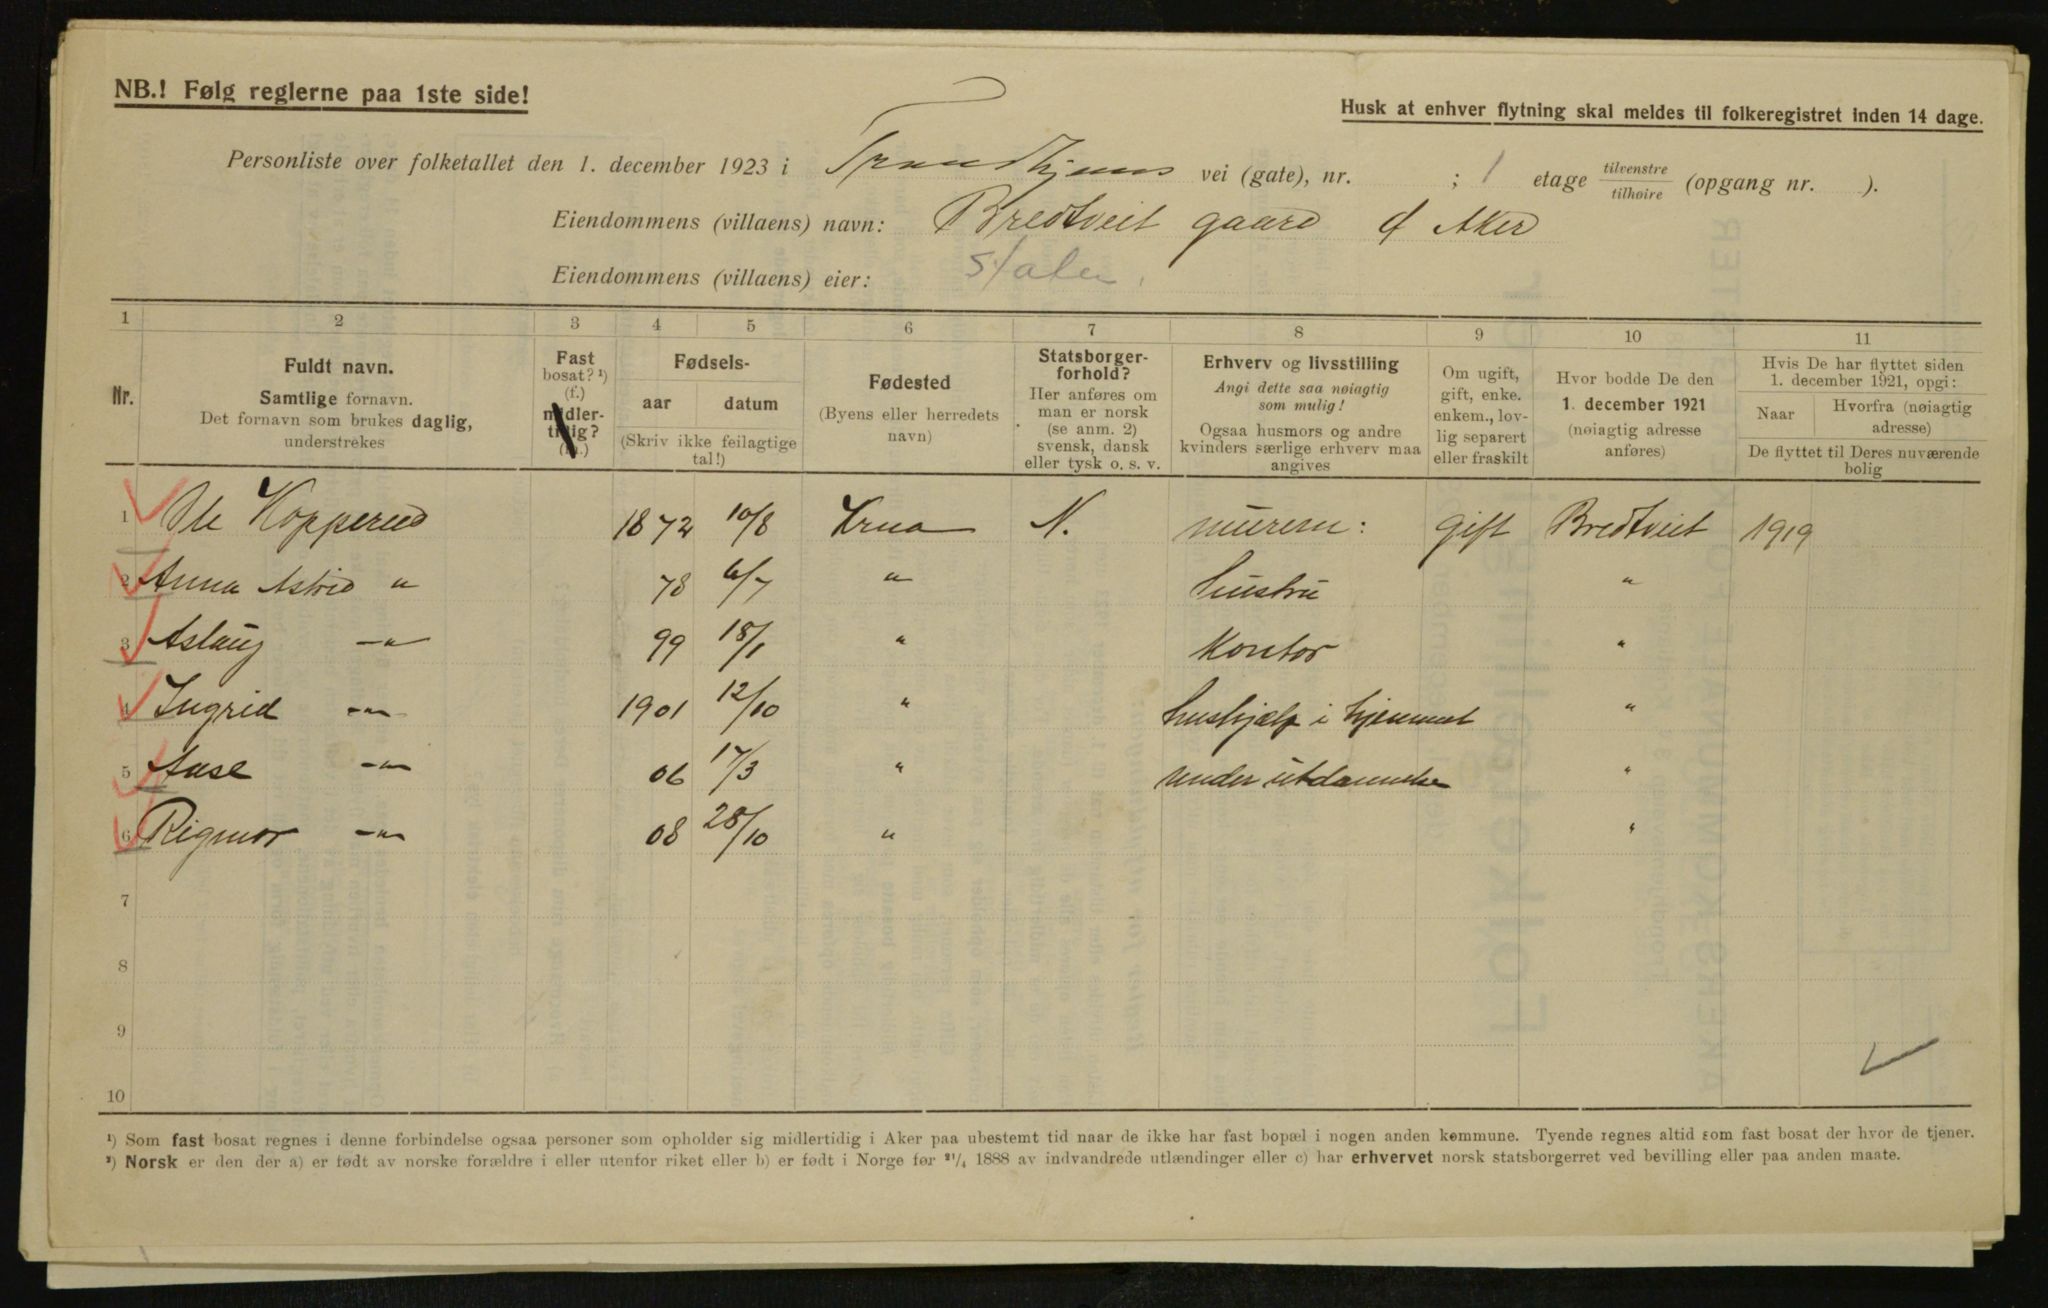 NB.! Følg reglerne paa 1ste side!
Husk at enhver flytning skal meldes til folkeregistret inden 14 dage.
Personliste over folketallet den 1. december 1923 i Trondhjems vei (gate), nr. ; 1 etage tilvenstre tilhøire (opgang nr. ).
Eiendommens (villaens) navn: Bredtveit gaard Aker
Eiendommens (villaens) eier: Staten
1 2 3 4 5 6 7 8 9 10 11
Nr.
Fuldt navn.
Samtlige fornavn.
Det fornavn som brukes daglig,
understrekes
Fast
bosat? ¹)
(f.)
midler-
tidig?
(m.)
Fødsels-
aar datum
(Skriv ikke feilagtige
tal!)
Fødested
(Byens eller herredets
navn)
Statsborger-
forhold?
Her anføres om
man er norsk
(se anm. 2)
svensk, dansk
eller tysk o. s. v.
Erhverv og livsstilling
Angi dette saa nøiagtig
som mulig!
Ogsaa husmors og andre
kvinders særlige erhverv maa
angives
Om ugift,
gift, enke.
enkem., lov-
lig separert
eller fraskilt
Hvor bodde De den
1. december 1921
(nøiagtig adresse
anføres)
Hvis De har flyttet siden
1. december 1921, opgi:
Naar Hvorfra (nøiagtig
adresse)
De flyttet til Deres nuværende
bolig
1 Ole Kopperud 1872 10/8 N. gift Bredtveit 1919
2 Anna Astrid " 78 6/7 " hustru "
3 Aslaug -"- 99 18/1 " Kontor "
4 Ingrid -"- 1901 12/10 " hushjælp i hjemmet "
5 Aase -"- 06 17/3 " under utdannelse "
6 Rigmor -"- 08 28/10 " "
7
8
9
10
¹) Som fast bosat regnes i denne forbindelse ogsaa personer som opholder sig midlertidig i Aker paa ubestemt tid naar de ikke har fast bopæl i nogen anden kommune. Tyende regnes altid som fast bosat der hvor de tjener.
²) Norsk er den der a) er født av norske forældre i eller utenfor riket eller b) er født i Norge før ²¹/₄ 1888 av indvandrede utlændinger eller c) har erhvervet norsk statsborgerret ved bevilling eller paa anden maate.